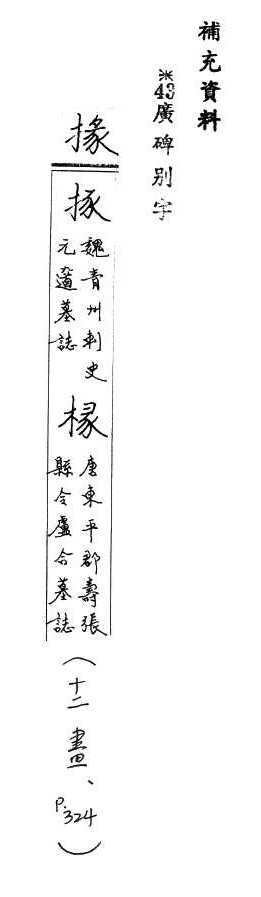 補充資料
※43廣碑別字
掾
魏青州刺史
元墓誌
椽
唐東平郡壽張
縣令盧墓誌
(十二畫、P.324)